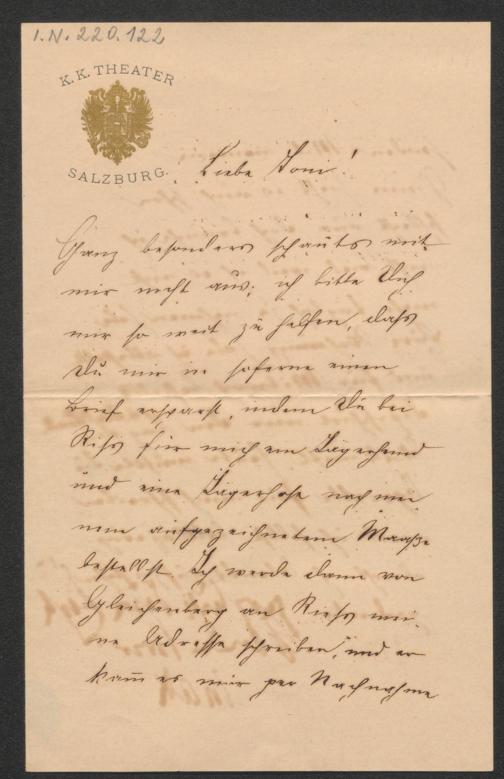 I.N. 220.122
K. K. THEATER
SALZBURG.
Liebe Toni!
Ganz besonders schauts mit
mir nicht aus; ich bitte Dich
mir so weit zu helfen, dass
Du mir in soferne einen
Brief ersparst, indem Du bei
Riess für mich ein Jägerhemd
und eine Jägerhose nach mei
nem aufgezeichneten Maaße
bestellst. Ich werde dann von
Gleichenberg an Riess mei-
ne Adresse schreiben, und er
kann es mir per Nachnahme